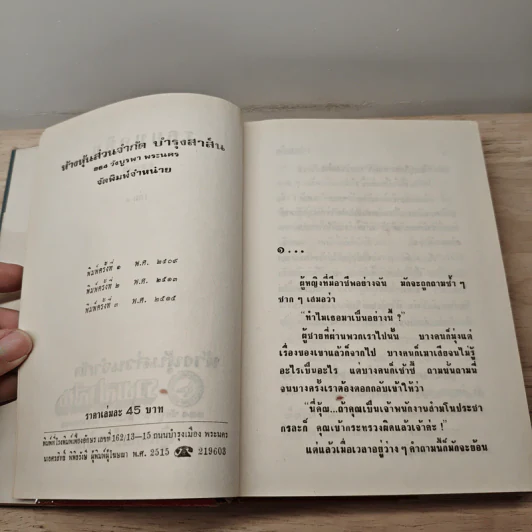 ห้างหุ้นส่วนจำกัด บำรุงสาส์น
๑๑๔ วังบูรพา พระนคร
จัดพิมพ์จำหน่าย
พิมพ์ครั้งที่ ๑ พ.ศ. ๒๕๐๙
พิมพ์ครั้งที่ ๒ พ.ศ. ๒๕๑๓
พิมพ์ครั้งที่ ๓ พ.ศ. ๒๕๑๕
ราคาเล่มละ 45 บาท
พิมพ์ที่โรงพิมพ์เฟื่องอักษร เลขที่ 162/13—15 ถนนบำรุงเมือง พระนคร
ผู้พิมพ์ผู้โฆษณา พ.ศ. 2515 ☎ 219603
๑...
ผู้หญิงที่มีอาชีพอย่างฉัน มักจะถูกถามซ้ำ ๆ
ซาก ๆ เสมอว่า
"ทำไมเธอมาเป็นอย่างนี้ ?"
ผู้ชายที่ผ่านพวกเราไปนั้น บางคนก็มุ่งแต่
เรื่องของเขาแล้วก็จากไป บางคนก็เมาเสียจนไม่รู้
อะไรเป็นอะไร แต่บางคนก็เซ้าซี้ ถามนั่นถามนี่
จนบางครั้งเราต้องตอกกลับเข้าให้ว่า
"นี่คุณ...ถ้าคุณเป็นเจ้าพนักงานสำมะโนประชา
กรละก็ คุณเข้ากระทรวงผิดแล้วเจ้าค่ะ !"
แต่แล้วเมื่อเวลาอยู่ว่าง ๆ คำถามนี้ก็มักจะย้อน